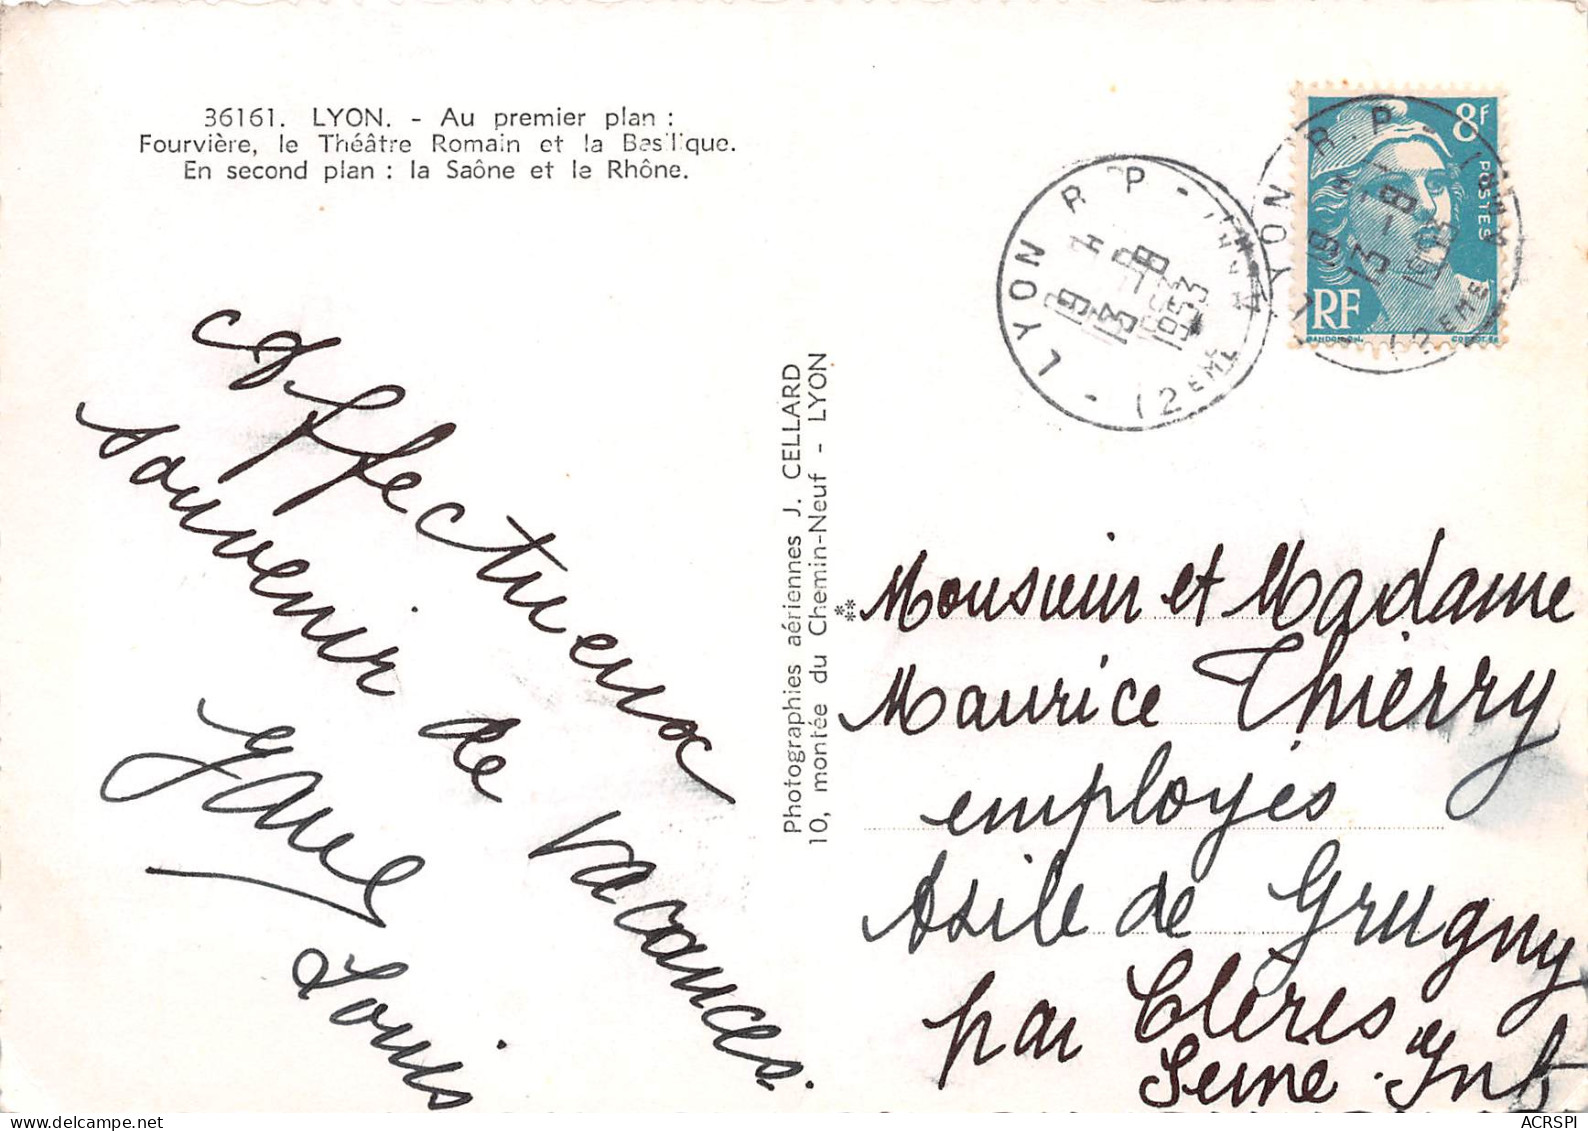 36161. LYON. - Au premier plan :
Fourvière, le Théâtre Romain et la Basilique.
En second plan : la Saône et le Rhône.
affectueux
souvenir de vacances.
Louis
Photographies aériennes J. CELLARD
10, montée du Chemin-Neuf - LYON
8F
POSTES
RF
GANDON
LYON R.P.
19 H
13-8
1953
(2EME
LYON R P
19 H
13-8
1953
(2EME
Monsieur et Madame
Maurice Thierry
employés
Asile de Grugny
par Clères
Seine Inf
ACRSPI